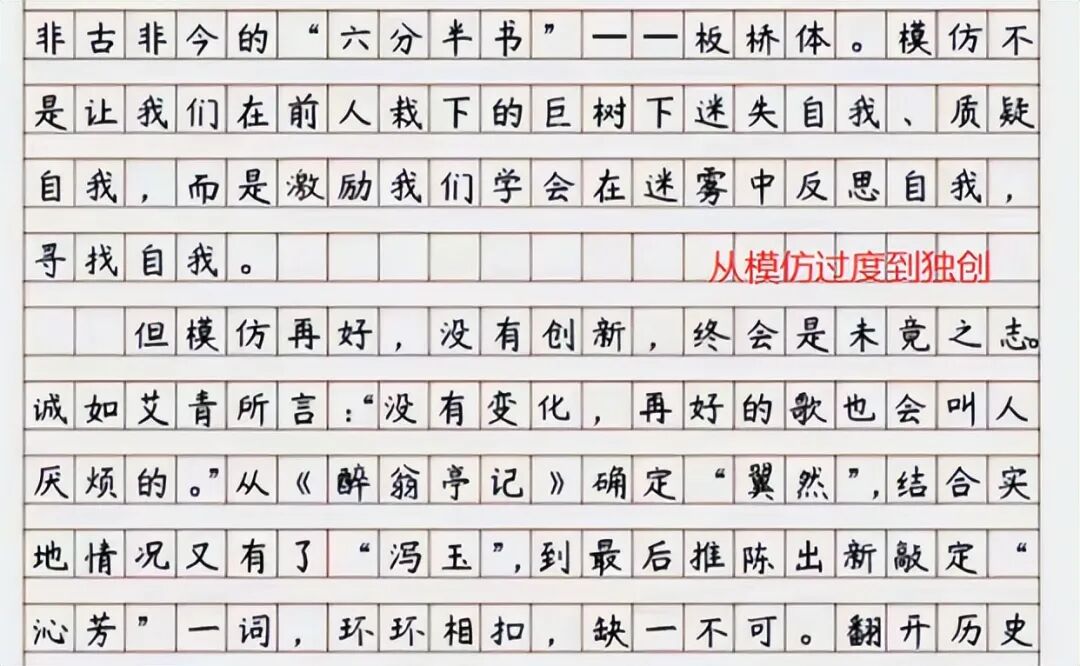 非古非今的“六分半书”——板桥体。模仿不
是让我们在前人栽下的巨树下迷失自我、质疑
自我，而是激励我们学会在迷雾中反思自我，
寻找自我。
从模仿过度到独创
但模仿再好，没有创新，终会是未竟之志。
诚如艾青所言：“没有变化，再好的歌也会叫人
厌烦的。”从《醉翁亭记》确定“翼然”，结合实
地情况又有了“泻玉”，到最后推陈出新敲定“
沁芳”一词，环环相扣，缺一不可。翻开历史